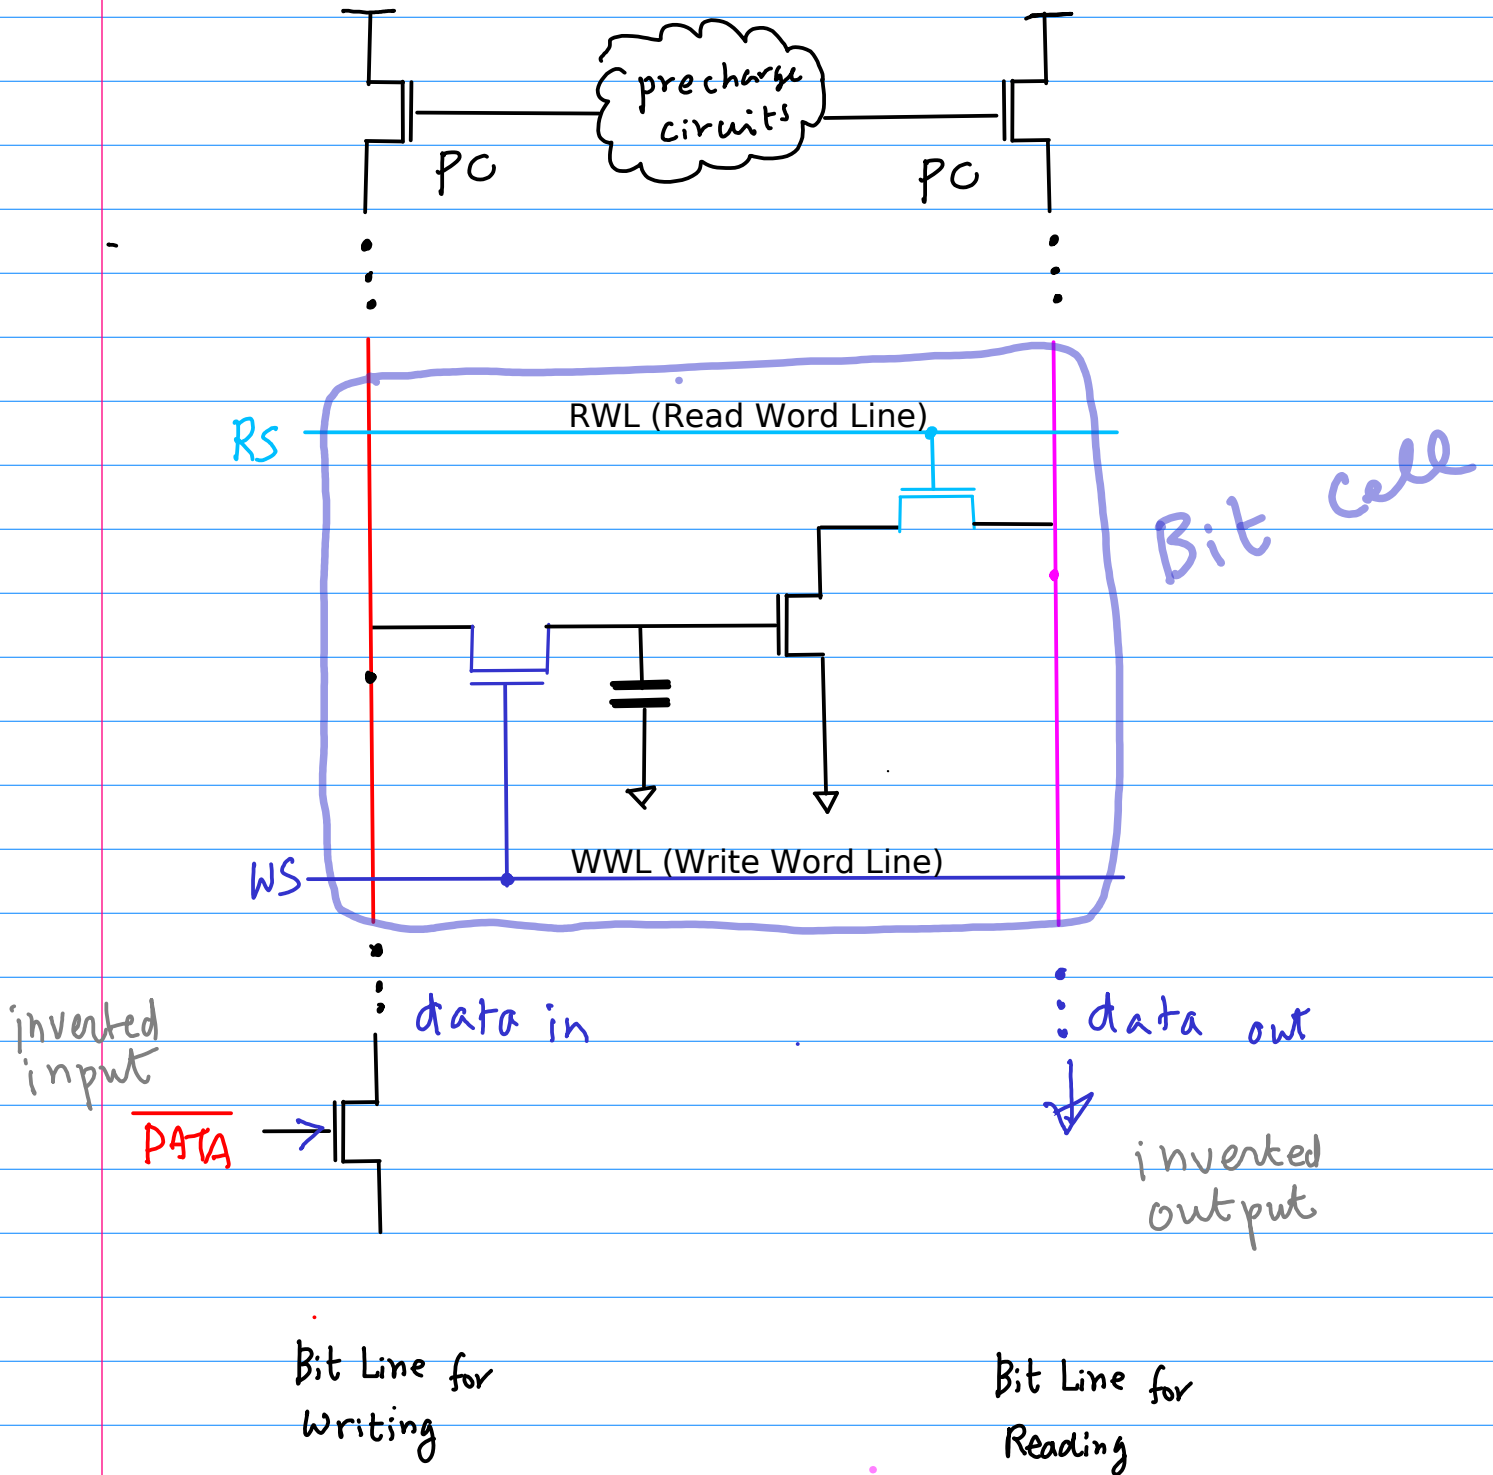 precharge
circuits
PC
PC
RWL (Read Word Line)
RS
Bit Cell
WWL (Write Word Line)
WS
data in
data out
inverted
input
DATA
inverted
output
Bit Line for
Writing
Bit Line for
Reading